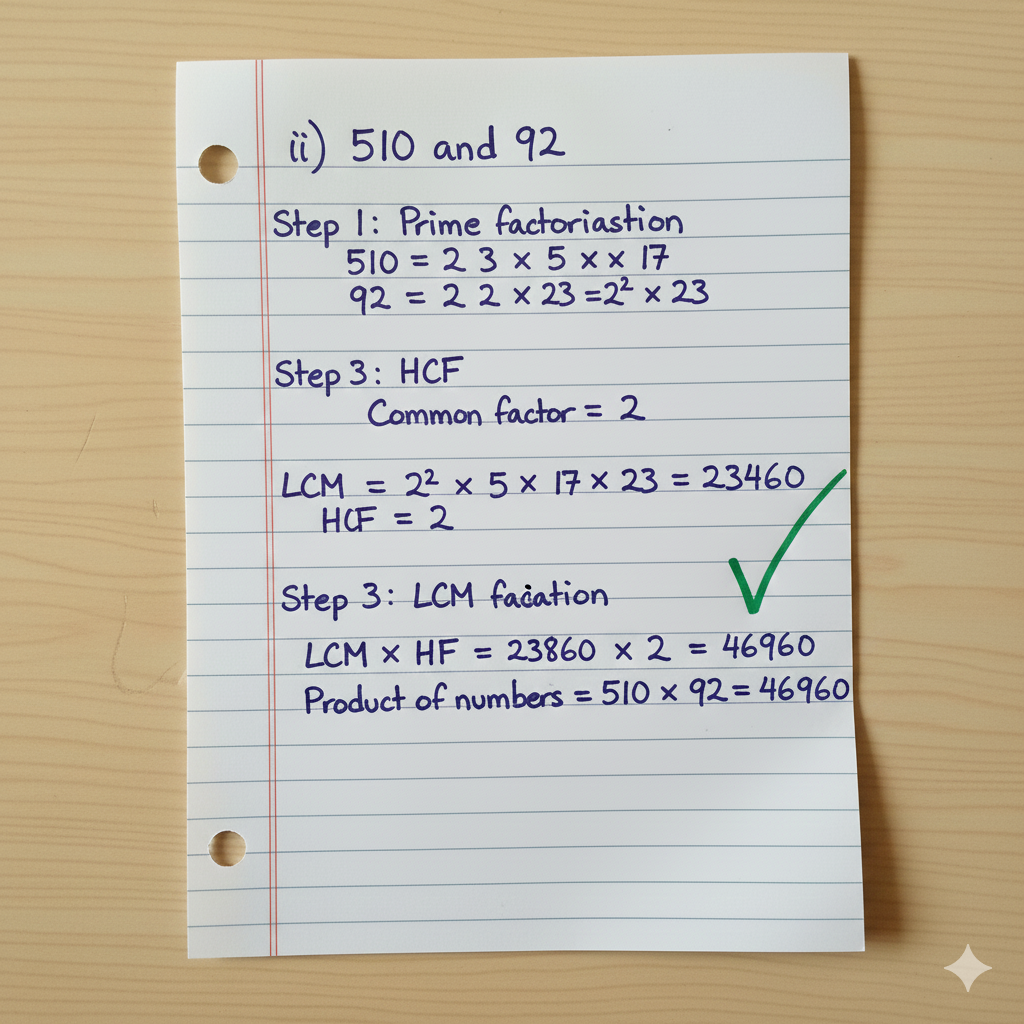 ii) 510 and 92
Step 1: Prime factoriastion
510 = 2 3 × 5 × × 17
92 = 2 2 × 23 =2² × 23
Step 3: HCF
Common factor = 2
LCM = 2² × 5 × 17 × 23 = 23460
HCF = 2
Step 3: LCM facation
LCM × HF = 23860 × 2 = 46960
Product of numbers = 510 × 92 = 46960